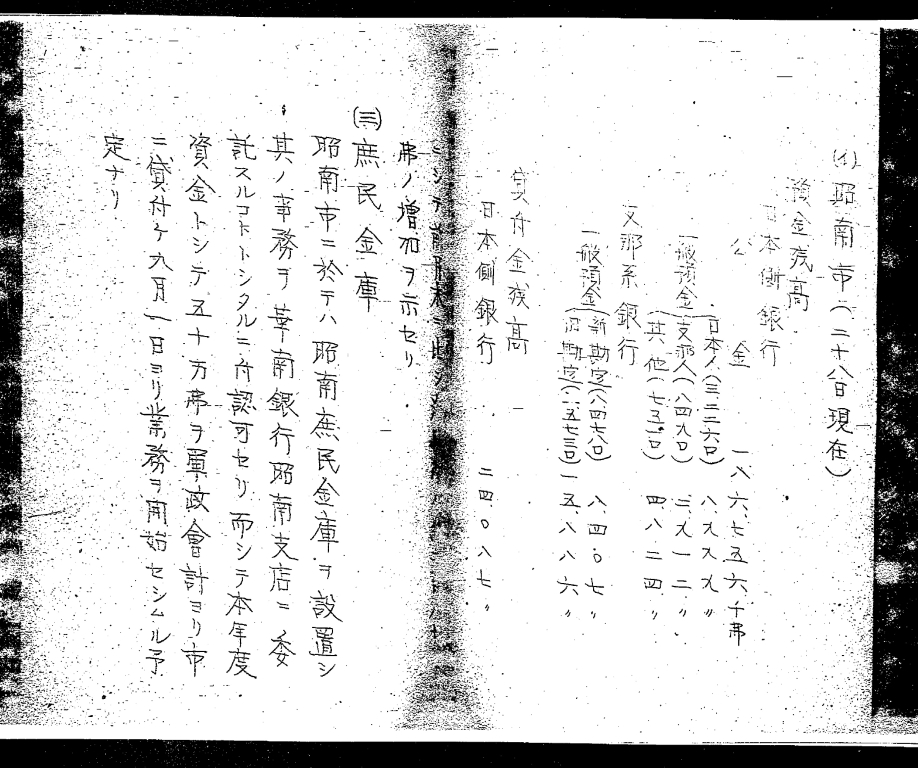 (イ) 昭南市(二十八日現在)
預金残高
日本側銀行
公金 一八六、七五六千弗
一般預金
日本人(三二二六口) 八、九九九〃
支那人(八四九口) 三、九一二〃
其他(七五一口) 四、八二四〃
支那系銀行
一般預金
新勘定(八四七八口) 八、四〇七〃
旧勘定( 一五、八八六〃
貸付金残高
日本側銀行 二四、〇八七〃
弗ノ増加ヲ示セリ
(三)庶民金庫
昭南市ニ於テハ昭南庶民金庫ヲ設置シ
其ノ事務ヲ華南銀行昭南支店ニ委
託スルコトトシタルニ付認可セリ而シテ本年度
資金トシテ五十万弗ヲ軍政會計ヨリ市
ニ貸付ケ九月一日ヨリ業務ヲ開始セシムル予
定ナリ